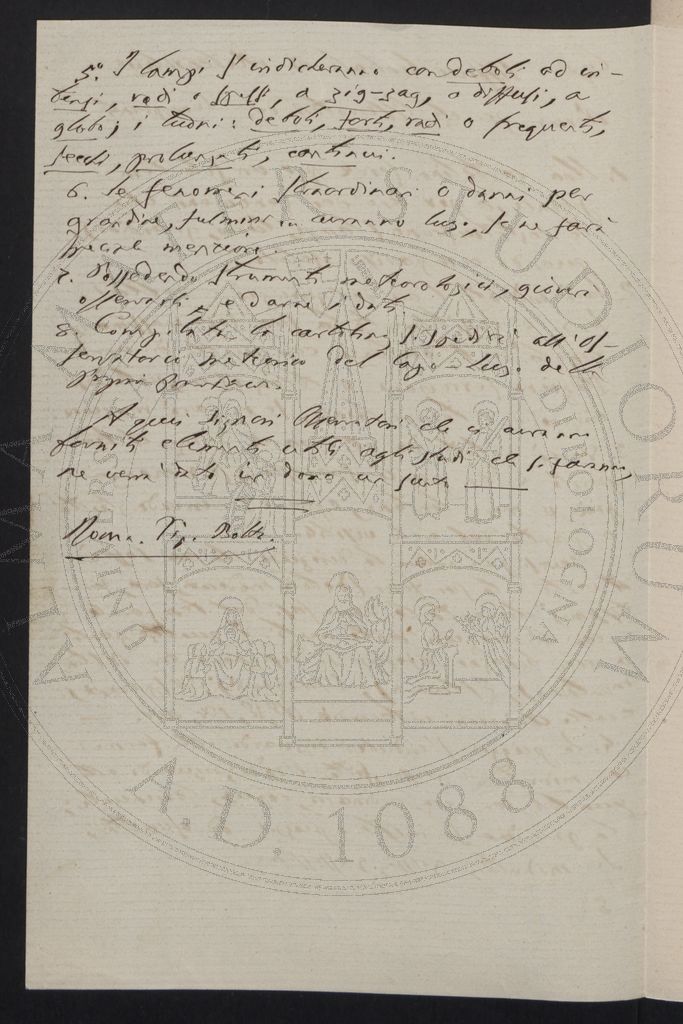 5°. I lampi s'indicheranno con deboli od in-
tensi, radi o spessi, a zig-zag, o diffusi, a
globo; i tuoni: deboli, forti, radi o frequenti,
secchi, prolungati, continui.
6. Se fenomeni straordinari o danni per
grandine, fulmini avranno luogo, se ne farà
speciale menzione.
7. Possedendo strumenti meteorologici, gioverà
osservarli e darne i dati.
8. Compilata la cartolina, si spedirà all'Os-
servatorio meteorico del
propria Provincia.
A quei signori Osservatori che ci avranno
forniti elementi utili agli studi che si faranno,
ne verrà dato in dono un sunto
Roma. Tip.
ALMA MATER STUDIORUM
UNIVERSITÀ DI BOLOGNA
A.D. 1088